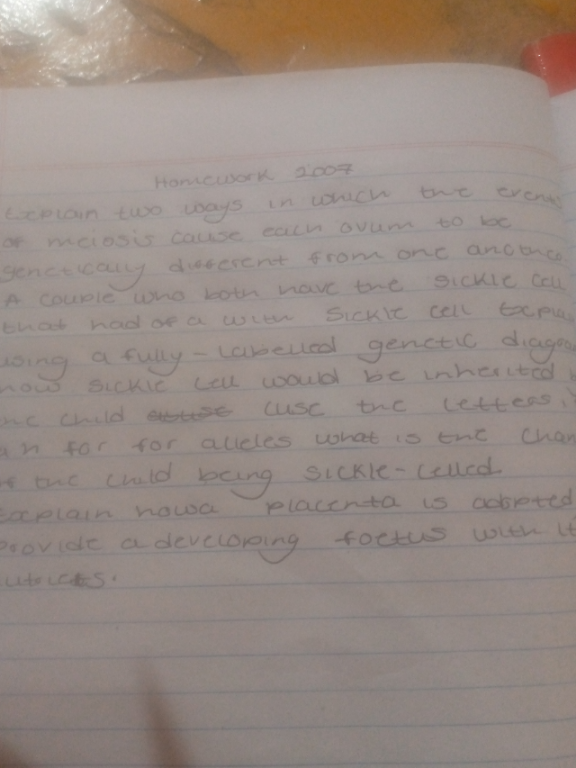 Homework 2007
Explain two ways in which the events
of meiosis cause each ovum to be
genetically different from one another
A couple who both have the sickle cell
that had of a with sickle cell Explain
using a fully-labelled genetic diagram
how sickle cell would be inherited
the child (use the letters
for for alleles what is the chan
of the child being sickle-celled
Explain how a placenta is adopted
provide a developing foetus with it